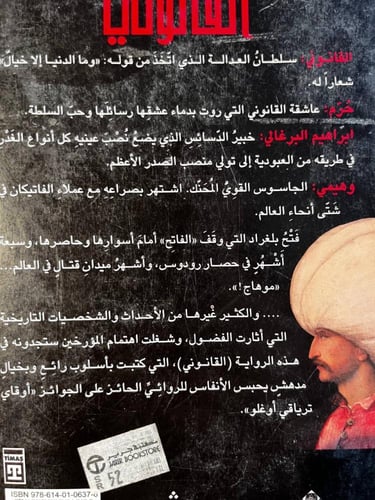 القانوني
القانوني: سلطانُ العدالة الذي اتّخذ من قوله: «وما الدنيا إلا خيالٌ»
شعاراً له.
خُرَّم: عاشقة القانوني التي روت بدماء عشقها رسائلها وحبّ السلطة.
ابراهيم البرغالي: خبيرُ الدّسائس الذي يضعُ نُصْبَ عينيهِ كل أنواع الغدْر
في طريقه من العبودية إلى تولي منصب الصدر الأعظم.
وهيمي: الجاسوس القويُّ المُحنّك. اشتهر بصراعِهِ مع عملاء الفاتيكان في
شتّى أنحاء العالم.
فتْحُ بلغراد التي وقفَ «الفاتح» أمامَ أسوارها وحاصرها، وسبعة
أشهُرٍ في حصار رودوس، وأشهرُ ميدان قتالٍ في العالم...
«موهاج!».
.... والكثير غيْرها من الأحداث والشخصيات التاريخية
التي أثارت الفضول، وشغلت اهتمام المؤرخين ستجدونه في
هذه الرواية (القانوني)، التي كتبت بأسلوب رائع وبخيال
مدهشٍ يحبس الأنفاس للروائيّ الحائز على الجوائز «أوقاي
ترياقي أوغلو».
مكتبة جرير
JARIR BOOKSTORE
SR
52
TİMAŞ
ISBN 978-614-01-0637-6